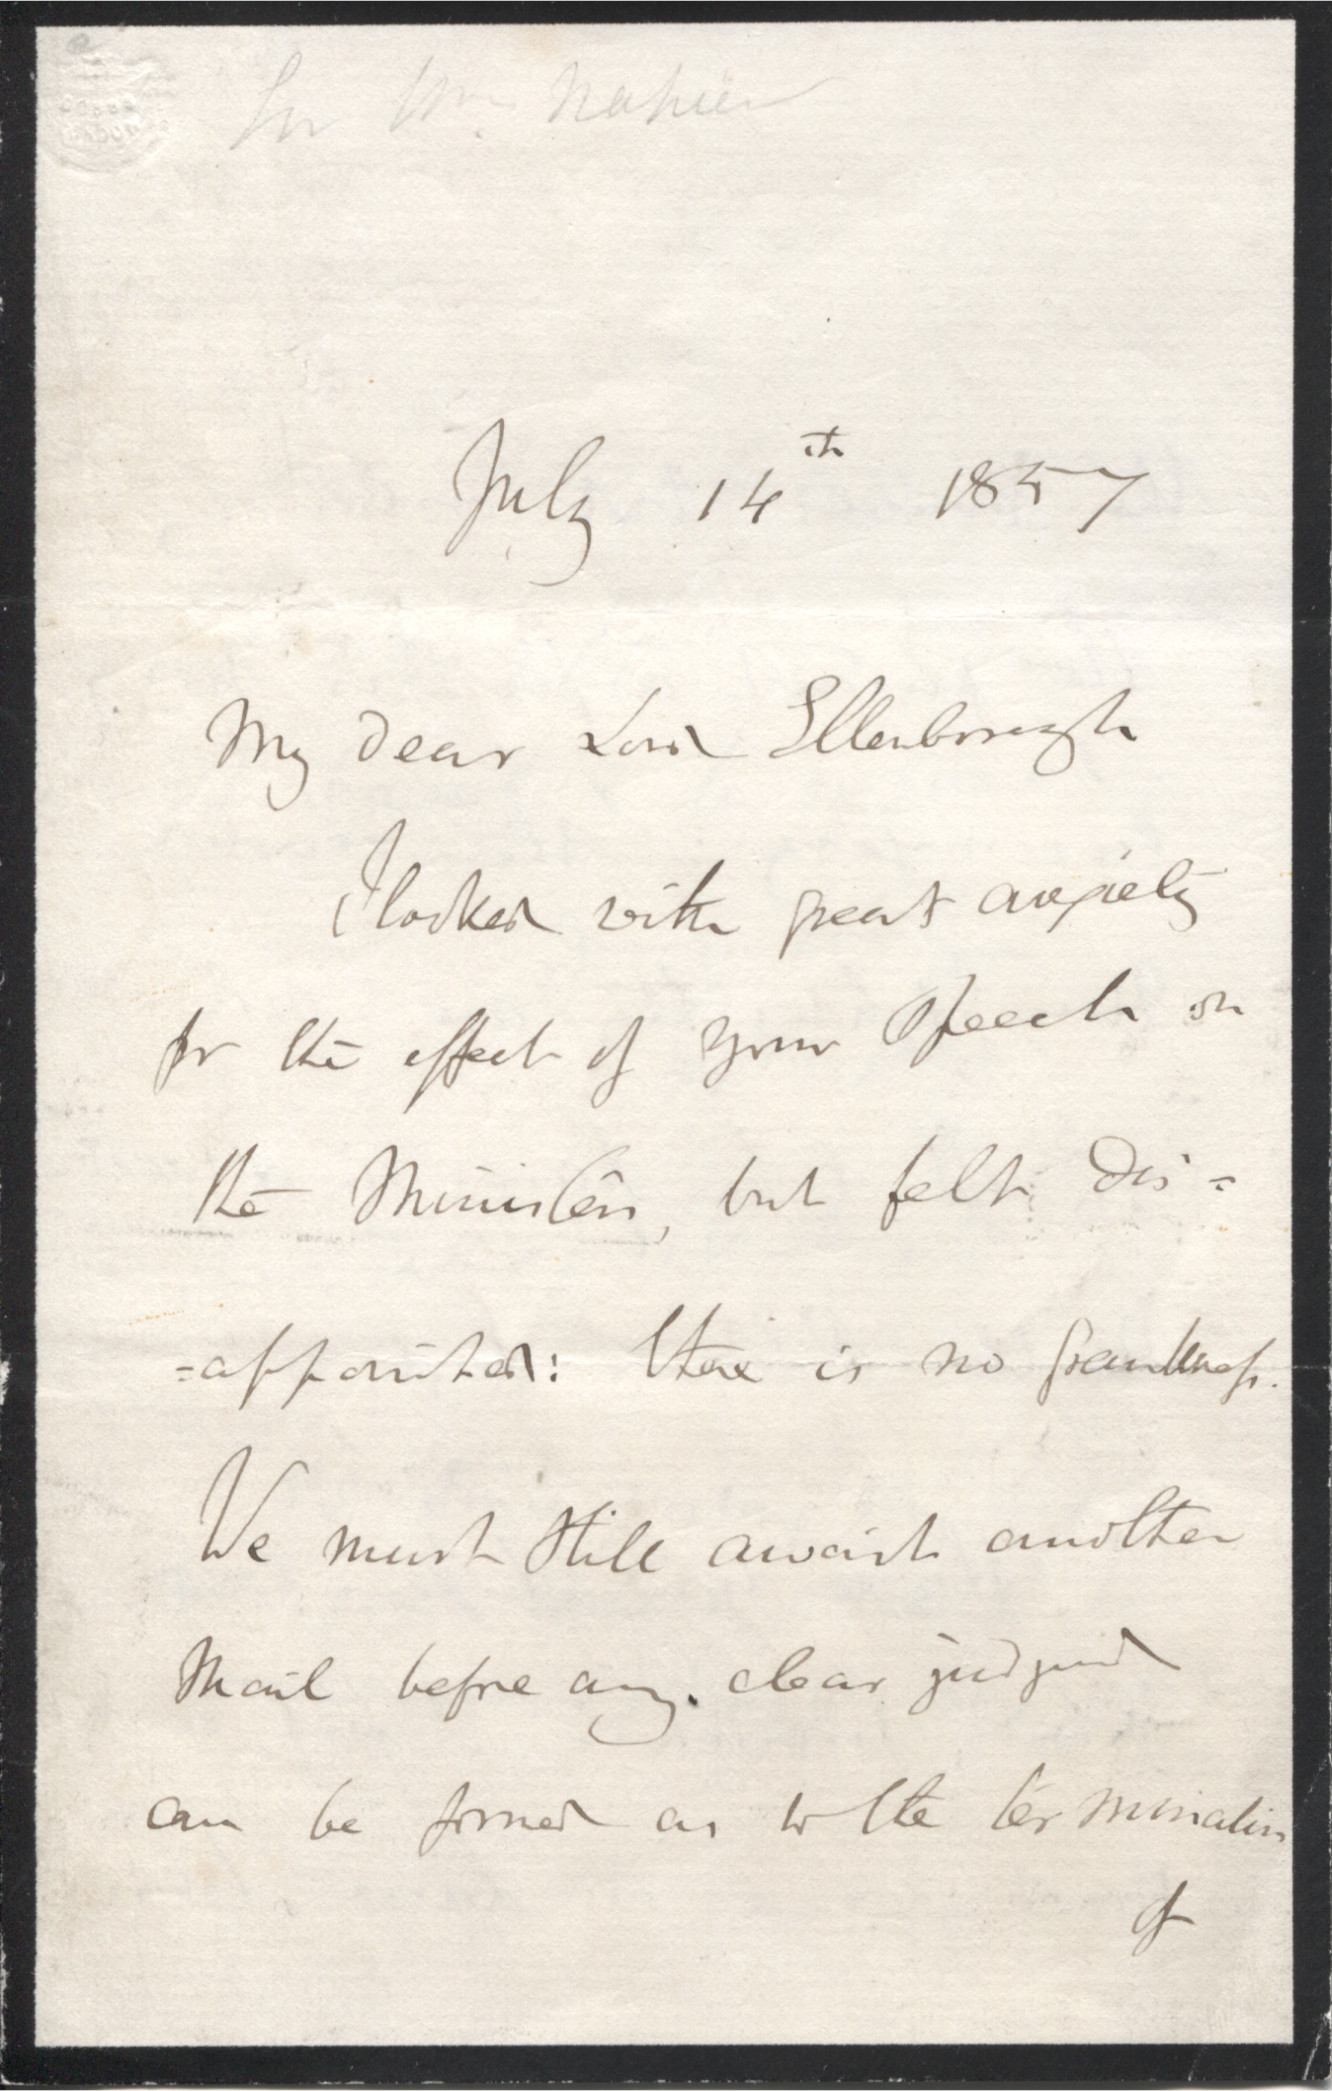 Sir Wm. Napier
July 14th 1857
My dear Lord Ellenborough
I looked with great anxiety
for the effect of your Speech on
the Ministers, but felt dis=
=appointed: there is no frankness.
We must still await another
Mail before any clear judgment
can be formed as to the termination
of